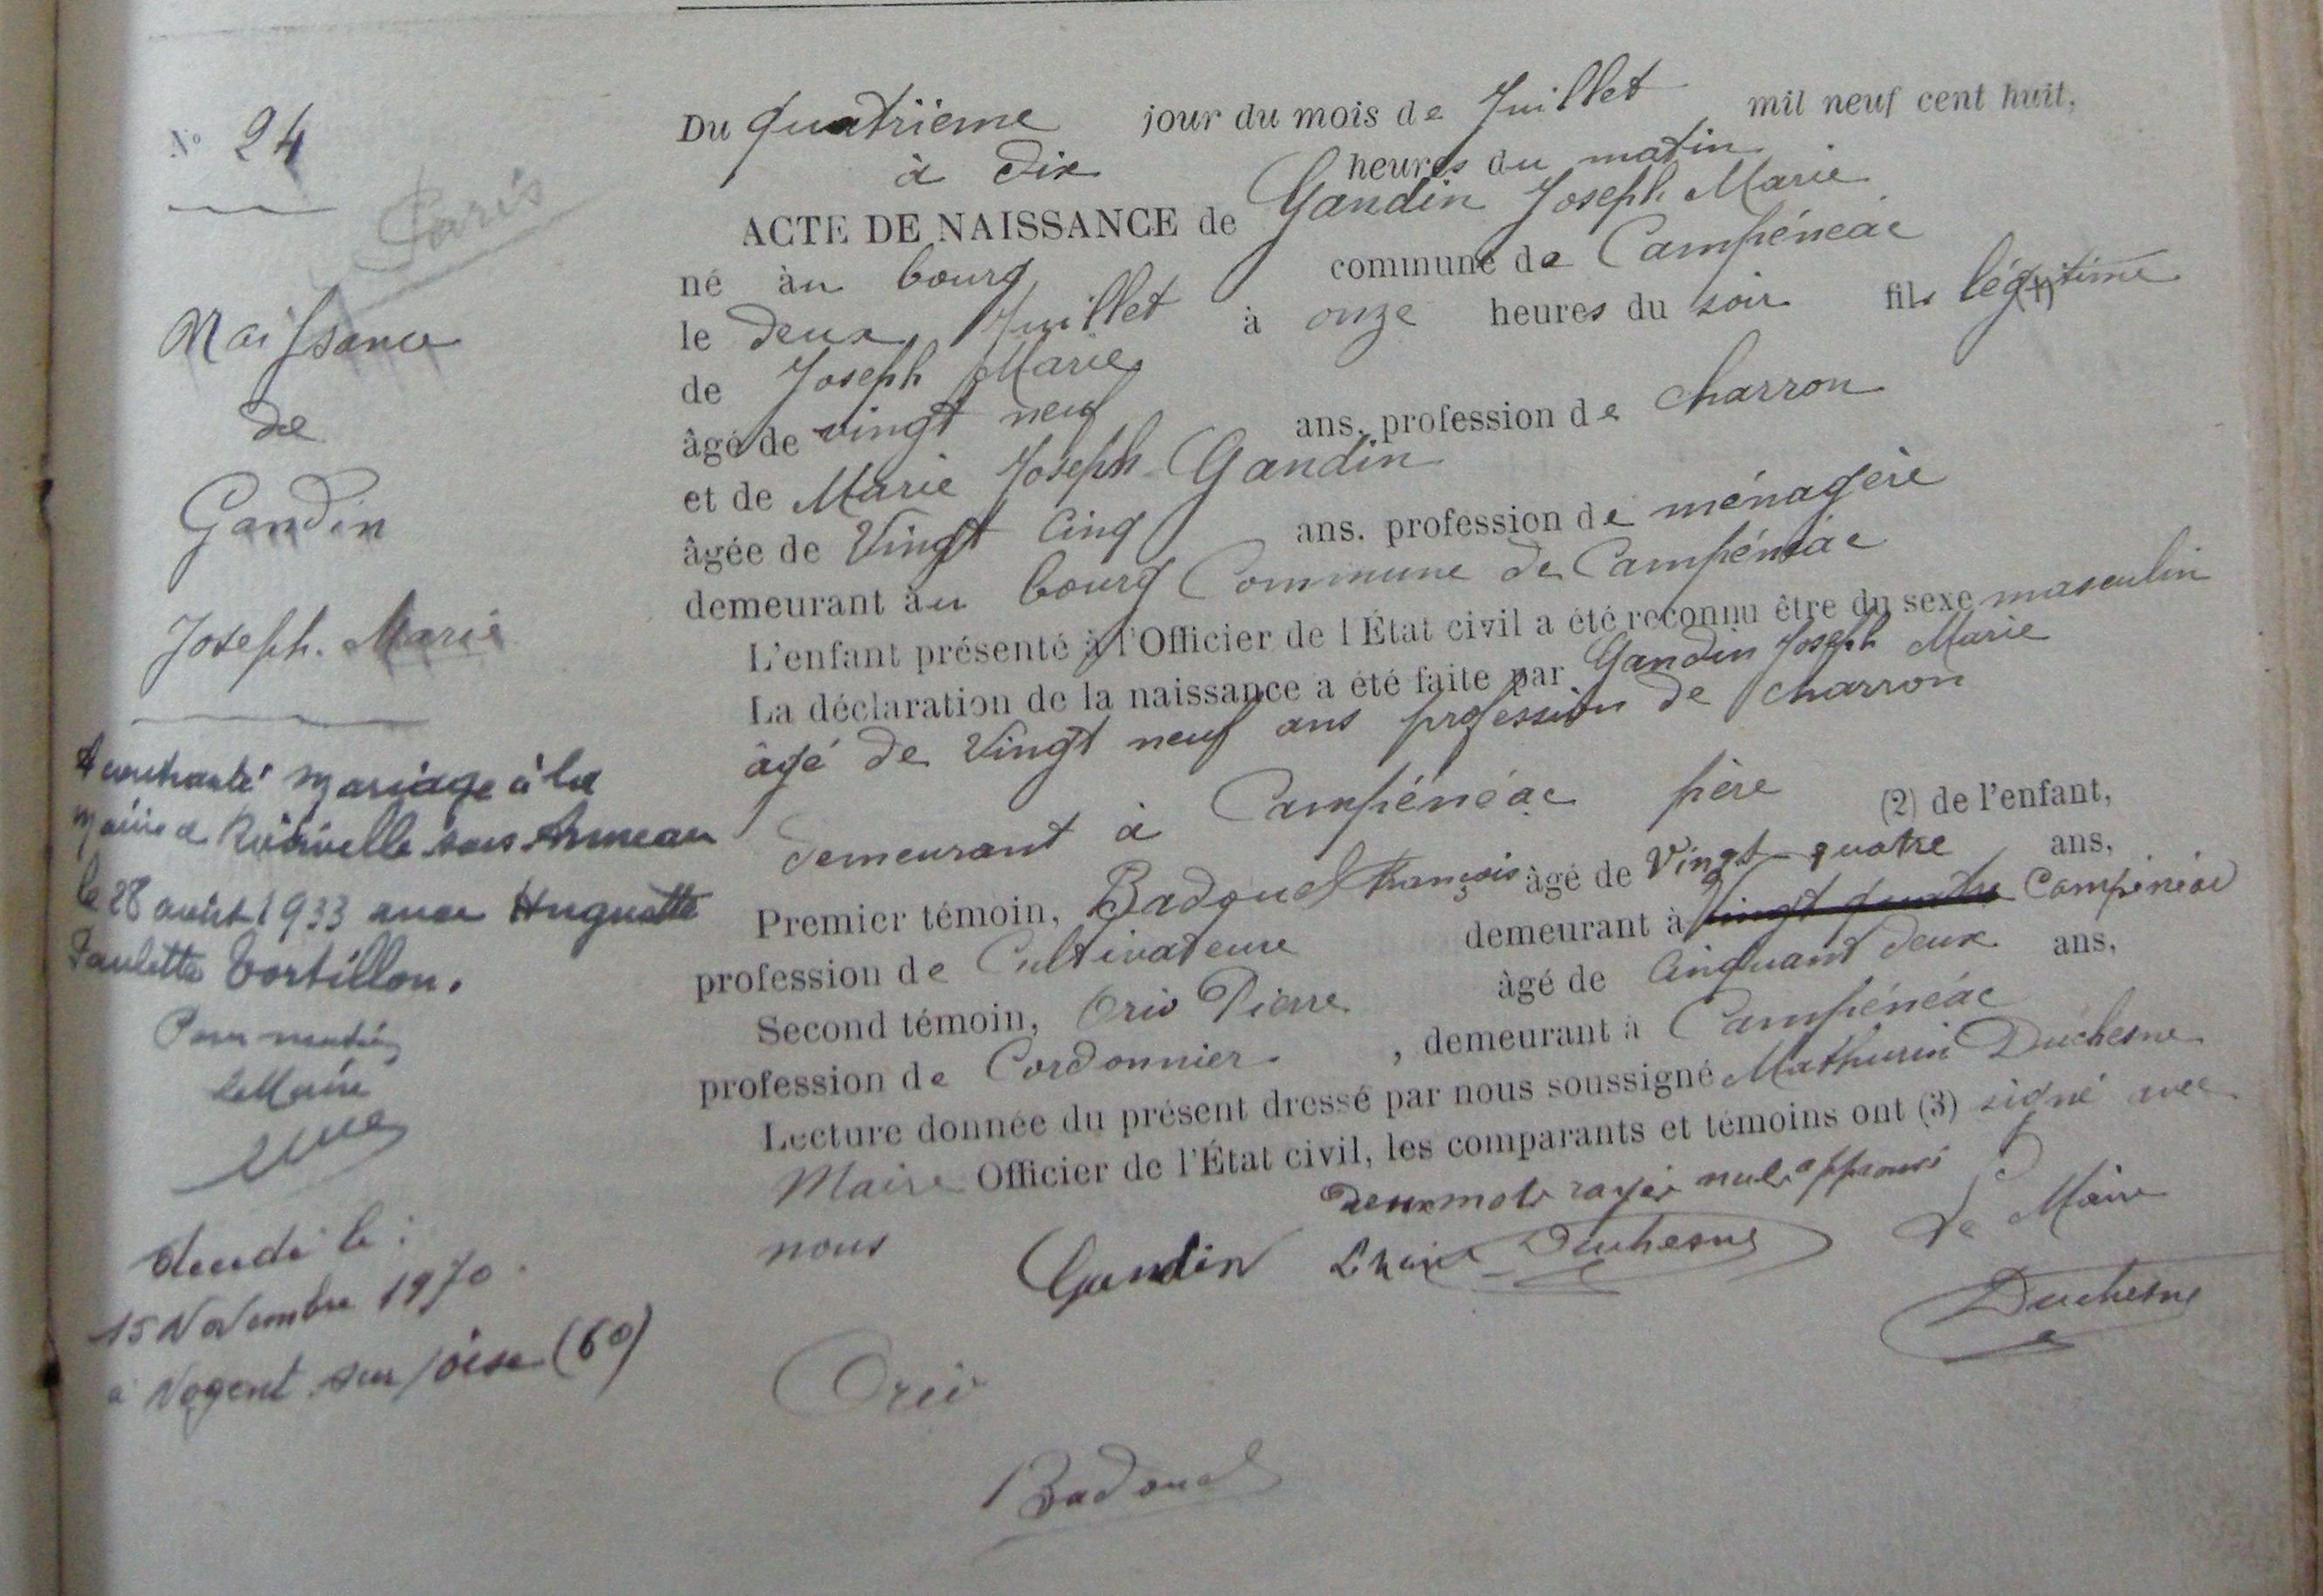 N° 24
Paris
Naissance
de
Gandin
Joseph. Marie
a contracté mariage à la
mairie de sous
le 28 août 1933 avec Huguette
Paulette Tortillon.
Pour mention
le Maire
décédé le :
15 Novembre 1970
à Nogent sur/oise (60)
Du quatrième jour du mois de Juillet mil neuf cent huit,
à dix heures du matin
ACTE DE NAISSANCE de Gandin Joseph Marie
né àu bourg commune de Campénéac
le deux Juillet à onze heures du soir fils légitime (1)
de Joseph Marie
âgé de vingt neuf ans, profession de charron
et de Marie Joseph Gandin
âgée de Vingt Cinq ans. profession de ménagère
demeurant àu bourg Commune de Campénéac
L'enfant présenté à l'Officier de l'État civil a été reconnu être du sexe masculin
La déclaration de la naissance a été faite par Gandin Joseph Marie
âgé de Vingt neuf ans profession de charron
demeurant à Campénéac père (2) de l'enfant,
Premier témoin, Badouel François âgé de Vingt-quatre ans,
profession de Cultivateur demeurant à Vingt quatre Campénéac
Second témoin, Orio Pierre âgé de Cinquant deux ans,
profession de Cordonnier. , demeurant à Campénéac
Lecture donnée du présent dressé par nous soussigné Mathurin Duchesne
Maire Officier de l'État civil, les comparants et témoins ont (3) signé avec
nous Deux mots rayés nuls approuvé
Gandin Duchesne Le Maire
Duchesne
Orio
Badouel